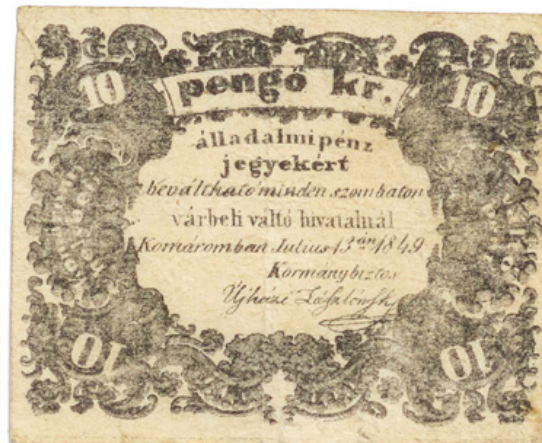 10 10
pengő kr.
álladalmi pénz
jegyekért
beváltható minden szombaton
várbeli váltó hivatalnál
Komáromban Julius 13án 1849
Kormánybiztos
Ujházi László mk
10 10